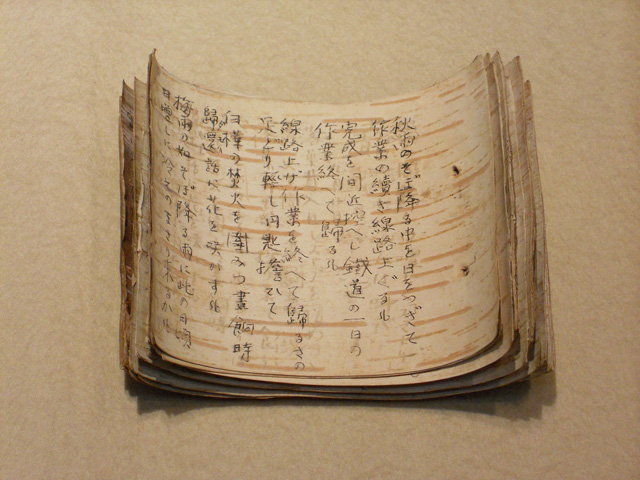 秋雨のそぼ降る中を日をつぎて
作業の續き線路上ぐるも
完成を間近に控へし鐵道の一日の
作業終へて歸るも
線路上げ作業を終へて歸るさの
足どり軽し円匙擔ひて
白樺の焚火を圍みつ晝餉時
歸還話に花を咲かすも
梅雨の如そぼ降る雨に此の日頃